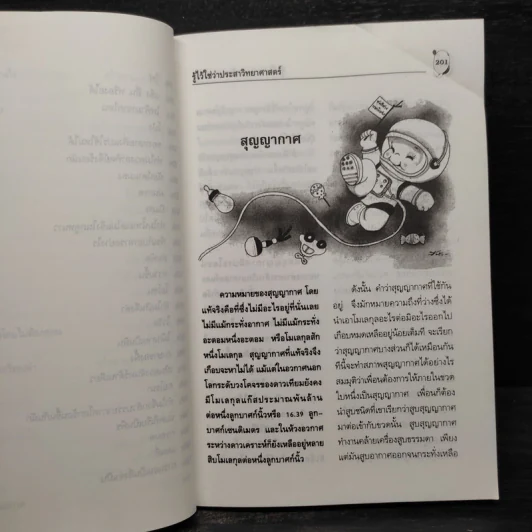 รู้ไว้ใช่ว่าประสาวิทยาศาสตร์
201
สุญญากาศ
ความหมายของสุญญากาศ โดย
แท้จริงคือที่ซึ่งไม่มีอะไรอยู่ที่นั่นเลย
ไม่มีแม้กระทั่งอากาศ ไม่มีแม้กระทั่ง
อะตอมหนึ่งอะตอม หรือโมเลกุลสัก
หนึ่งโมเลกุล สุญญากาศที่แท้จริงจึง
เกือบจะหาไม่ได้ แม้แต่ในอวกาศนอก
โลกระดับวงโคจรของดาวเทียมยังคง
มีโมเลกุลแก๊สประมาณพันล้าน
ต่อหนึ่งลูกบาศก์นิ้วหรือ 16.39 ลูก-
บาศก์เซนติเมตร และในห้วงอวกาศ
ระหว่างดาวเคราะห์ก็ยังเหลืออยู่หลาย
สิบโมเลกุลต่อหนึ่งลูกบาศก์นิ้ว
ดังนั้น คำว่าสุญญากาศที่ใช้กัน
อยู่ จึงมักหมายความถึงที่ว่างซึ่งได้
นำเอาโมเลกุลอะไรต่อมิอะไรออกไป
เกือบหมดเหลืออยู่น้อยเต็มที จะเรียก
ว่าสุญญากาศบางส่วนก็ได้เหมือนกัน
ทีนี้จะทำสภาพสุญญากาศได้อย่างไร
สมมุติว่าเพื่อนต้องการให้ภายในขวด
ใบหนึ่งเป็นสุญญากาศ เพื่อนก็ต้อง
นำสูบชนิดที่เขาเรียกว่าสูบสุญญากาศ
มาต่อเข้ากับขวดนั้น สูบสุญญากาศ
ทำงานคล้ายเครื่องสูบธรรมดา เพียง
แต่มันสูบอากาศออกจนกระทั่งเหลือ